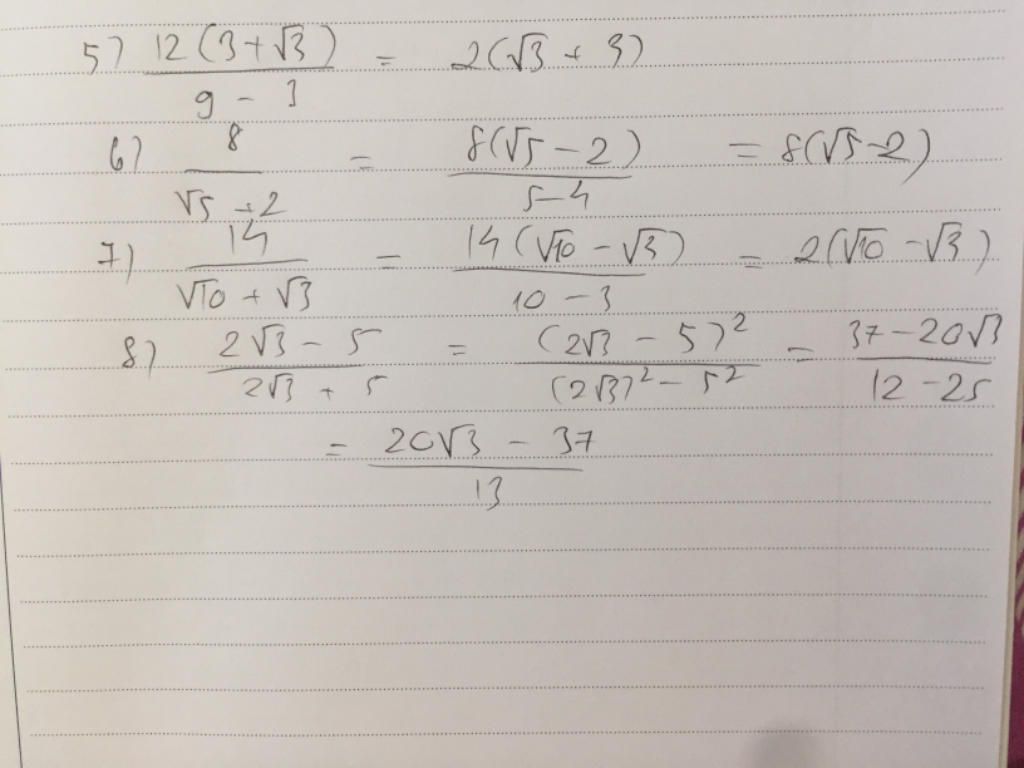 5) 12(3+√3) / 9 - 3 = 2(√3 + 3)
6) 8 / √5 + 2 = 8(√5 - 2) / 5-4 = 8(√5-2)
7) 14 / √10 + √3 = 14(√10 - √3) / 10 - 3 = 2(√10 - √3)
8) 2√3 - 5 / 2√3 + 5 = (2√3 - 5)² / (2√3)² - 5² = 37 - 20√3 / 12 - 25
= 20√3 - 37 / 13